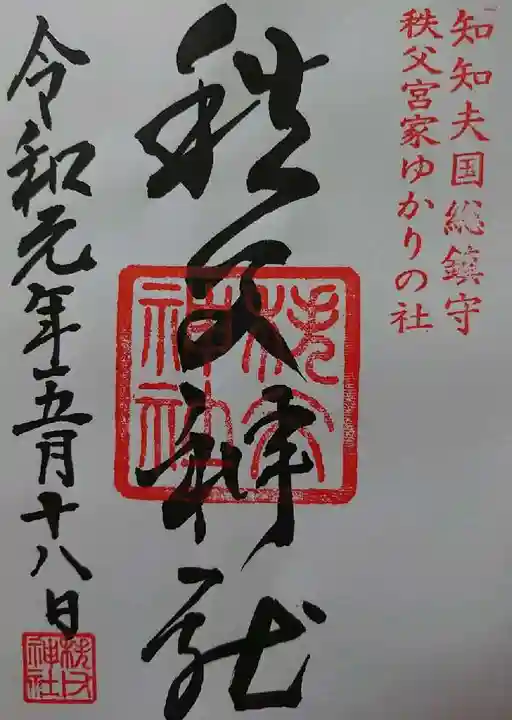 知知夫国総鎮守
秩父宮家ゆかりの社
秩父神社
秩父神社
令和元年五月十八日
秩父神社